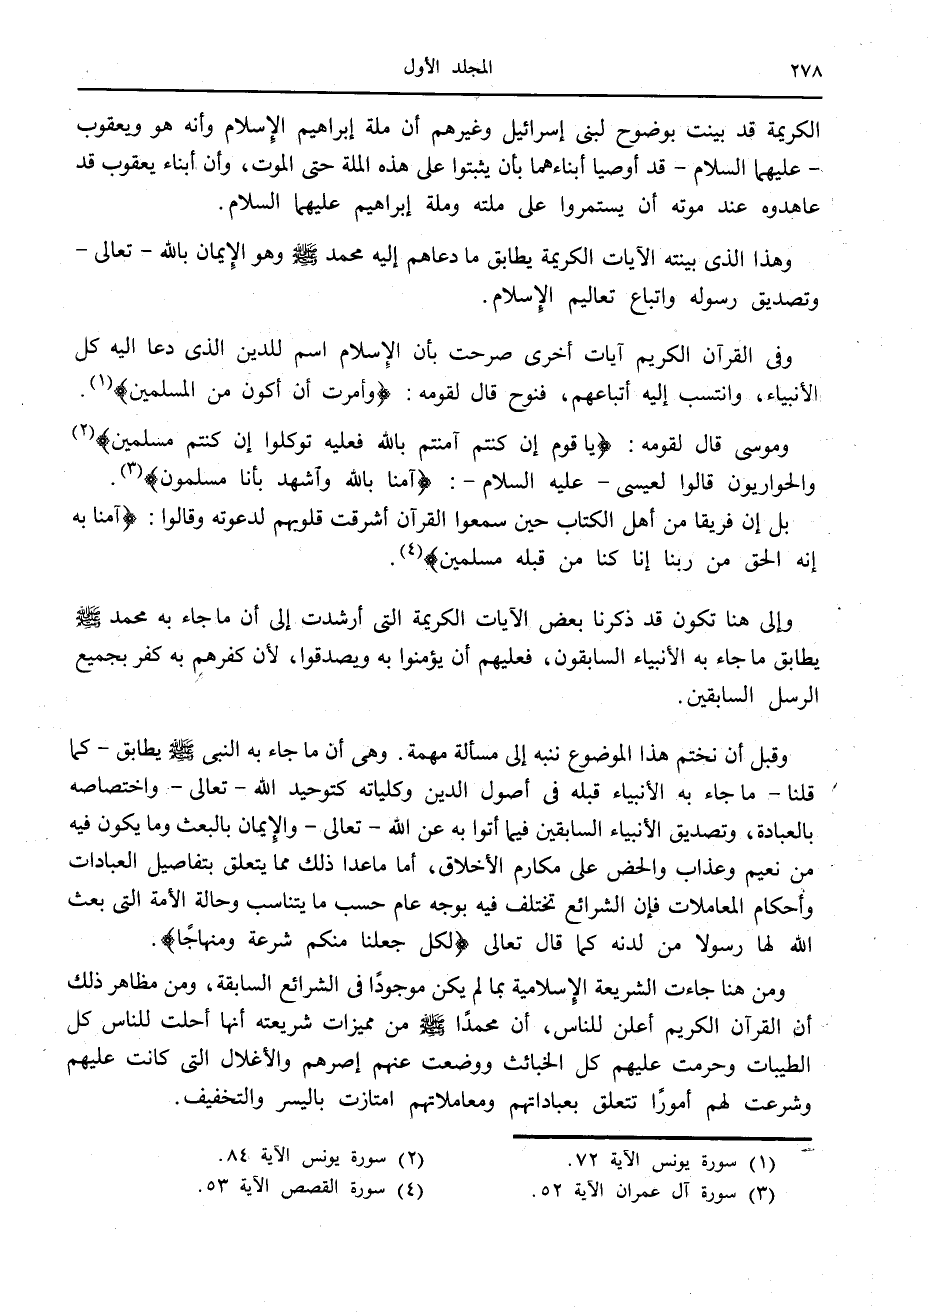 ٢٧٨
المجلد الأول
الكريمة قد بينت بوضوح لبنى إسرائيل وغيرهم أن ملة إبراهيم الإسلام وأنه هو ويعقوب
- عليهما السلام - قد أوصيا أبناءهما بأن يثبتوا على هذه الملة حتى الموت، وأن أبناء يعقوب قد
عاهدوه عند موته أن يستمروا على ملته وملة إبراهيم عليهما السلام.
وهذا الذى بينته الآيات الكريمة يطابق ما دعاهم إليه محمد ﷺ وهو الإيمان بالله - تعالى -
وتصديق رسوله واتباع تعاليم الإسلام.
وفى القرآن الكريم آيات أخرى صرحت بأن الإسلام اسم للدين الذى دعا اليه كل
الأنبياء، وانتسب إليه أتباعهم، فنوح قال لقومه: ﴿وأمرت أن أكون من المسلمين﴾(١).
وموسى قال لقومه: ﴿يا قوم إن كنتم آمنتم بالله فعليه توكلوا إن كنتم مسلمين﴾(٢)
والحواريون قالوا لعيسى - عليه السلام -: ﴿آمنا بالله وآشهد بأنا مسلمون﴾(٣).
بل إن فريقا من أهل الكتاب حين سمعوا القرآن أشرقت قلوبهم لدعوته وقالوا: ﴿آمنا به
إنه الحق من ربنا إنا كنا من قبله مسلمين﴾(٤).
وإلى هنا تكون قد ذكرنا بعض الآيات الكريمة التى أرشدت إلى أن ما جاء به محمد ﷺ
يطابق ما جاء به الأنبياء السابقون، فعليهم أن يؤمنوا به ويصدقوا، لأن كفرهم به كفر بجميع
الرسل السابقين.
وقبل أن نختم هذا الموضوع ننبه إلى مسألة مهمة. وهى أن ما جاء به النبى ﷺ يطابق - كما
قلنا - ما جاء به الأنبياء قبله فى أصول الدين وكلياته كتوحيد الله - تعالى - واختصاصه
بالعبادة، وتصديق الأنبياء السابقين فيما أتوا به عن الله - تعالى - والإيمان بالبعث وما يكون فيه
من نعيم وعذاب والحض على مكارم الأخلاق، أما ماعدا ذلك مما يتعلق بتفاصيل العبادات
وأحكام المعاملات فإن الشرائع تختلف فيه بوجه عام حسب ما يتناسب وحالة الأمة التى بعث
الله لها رسولا من لدنه كما قال تعالى ﴿لكل جعلنا منكم شرعة ومنهاجًا﴾.
ومن هنا جاءت الشريعة الإسلامية بما لم يكن موجودًا فى الشرائع السابقة، ومن مظاهر ذلك
أن القرآن الكريم أعلن للناس، أن محمدًا ﷺ من مميزات شريعته أنها أحلت للناس كل
الطيبات وحرمت عليهم كل الخبائث ووضعت عنهم إصرهم والأغلال التى كانت عليهم
وشرعت لهم أمورًا تتعلق بعباداتهم ومعاملاتهم امتازت باليسر والتخفيف.
(١) سورة يونس الآية ٧٢.
(٢) سورة يونس الآية ٨٤.
(٣) سورة آل عمران الآية ٥٢.
(٤) سورة القصص الآية ٥٣.